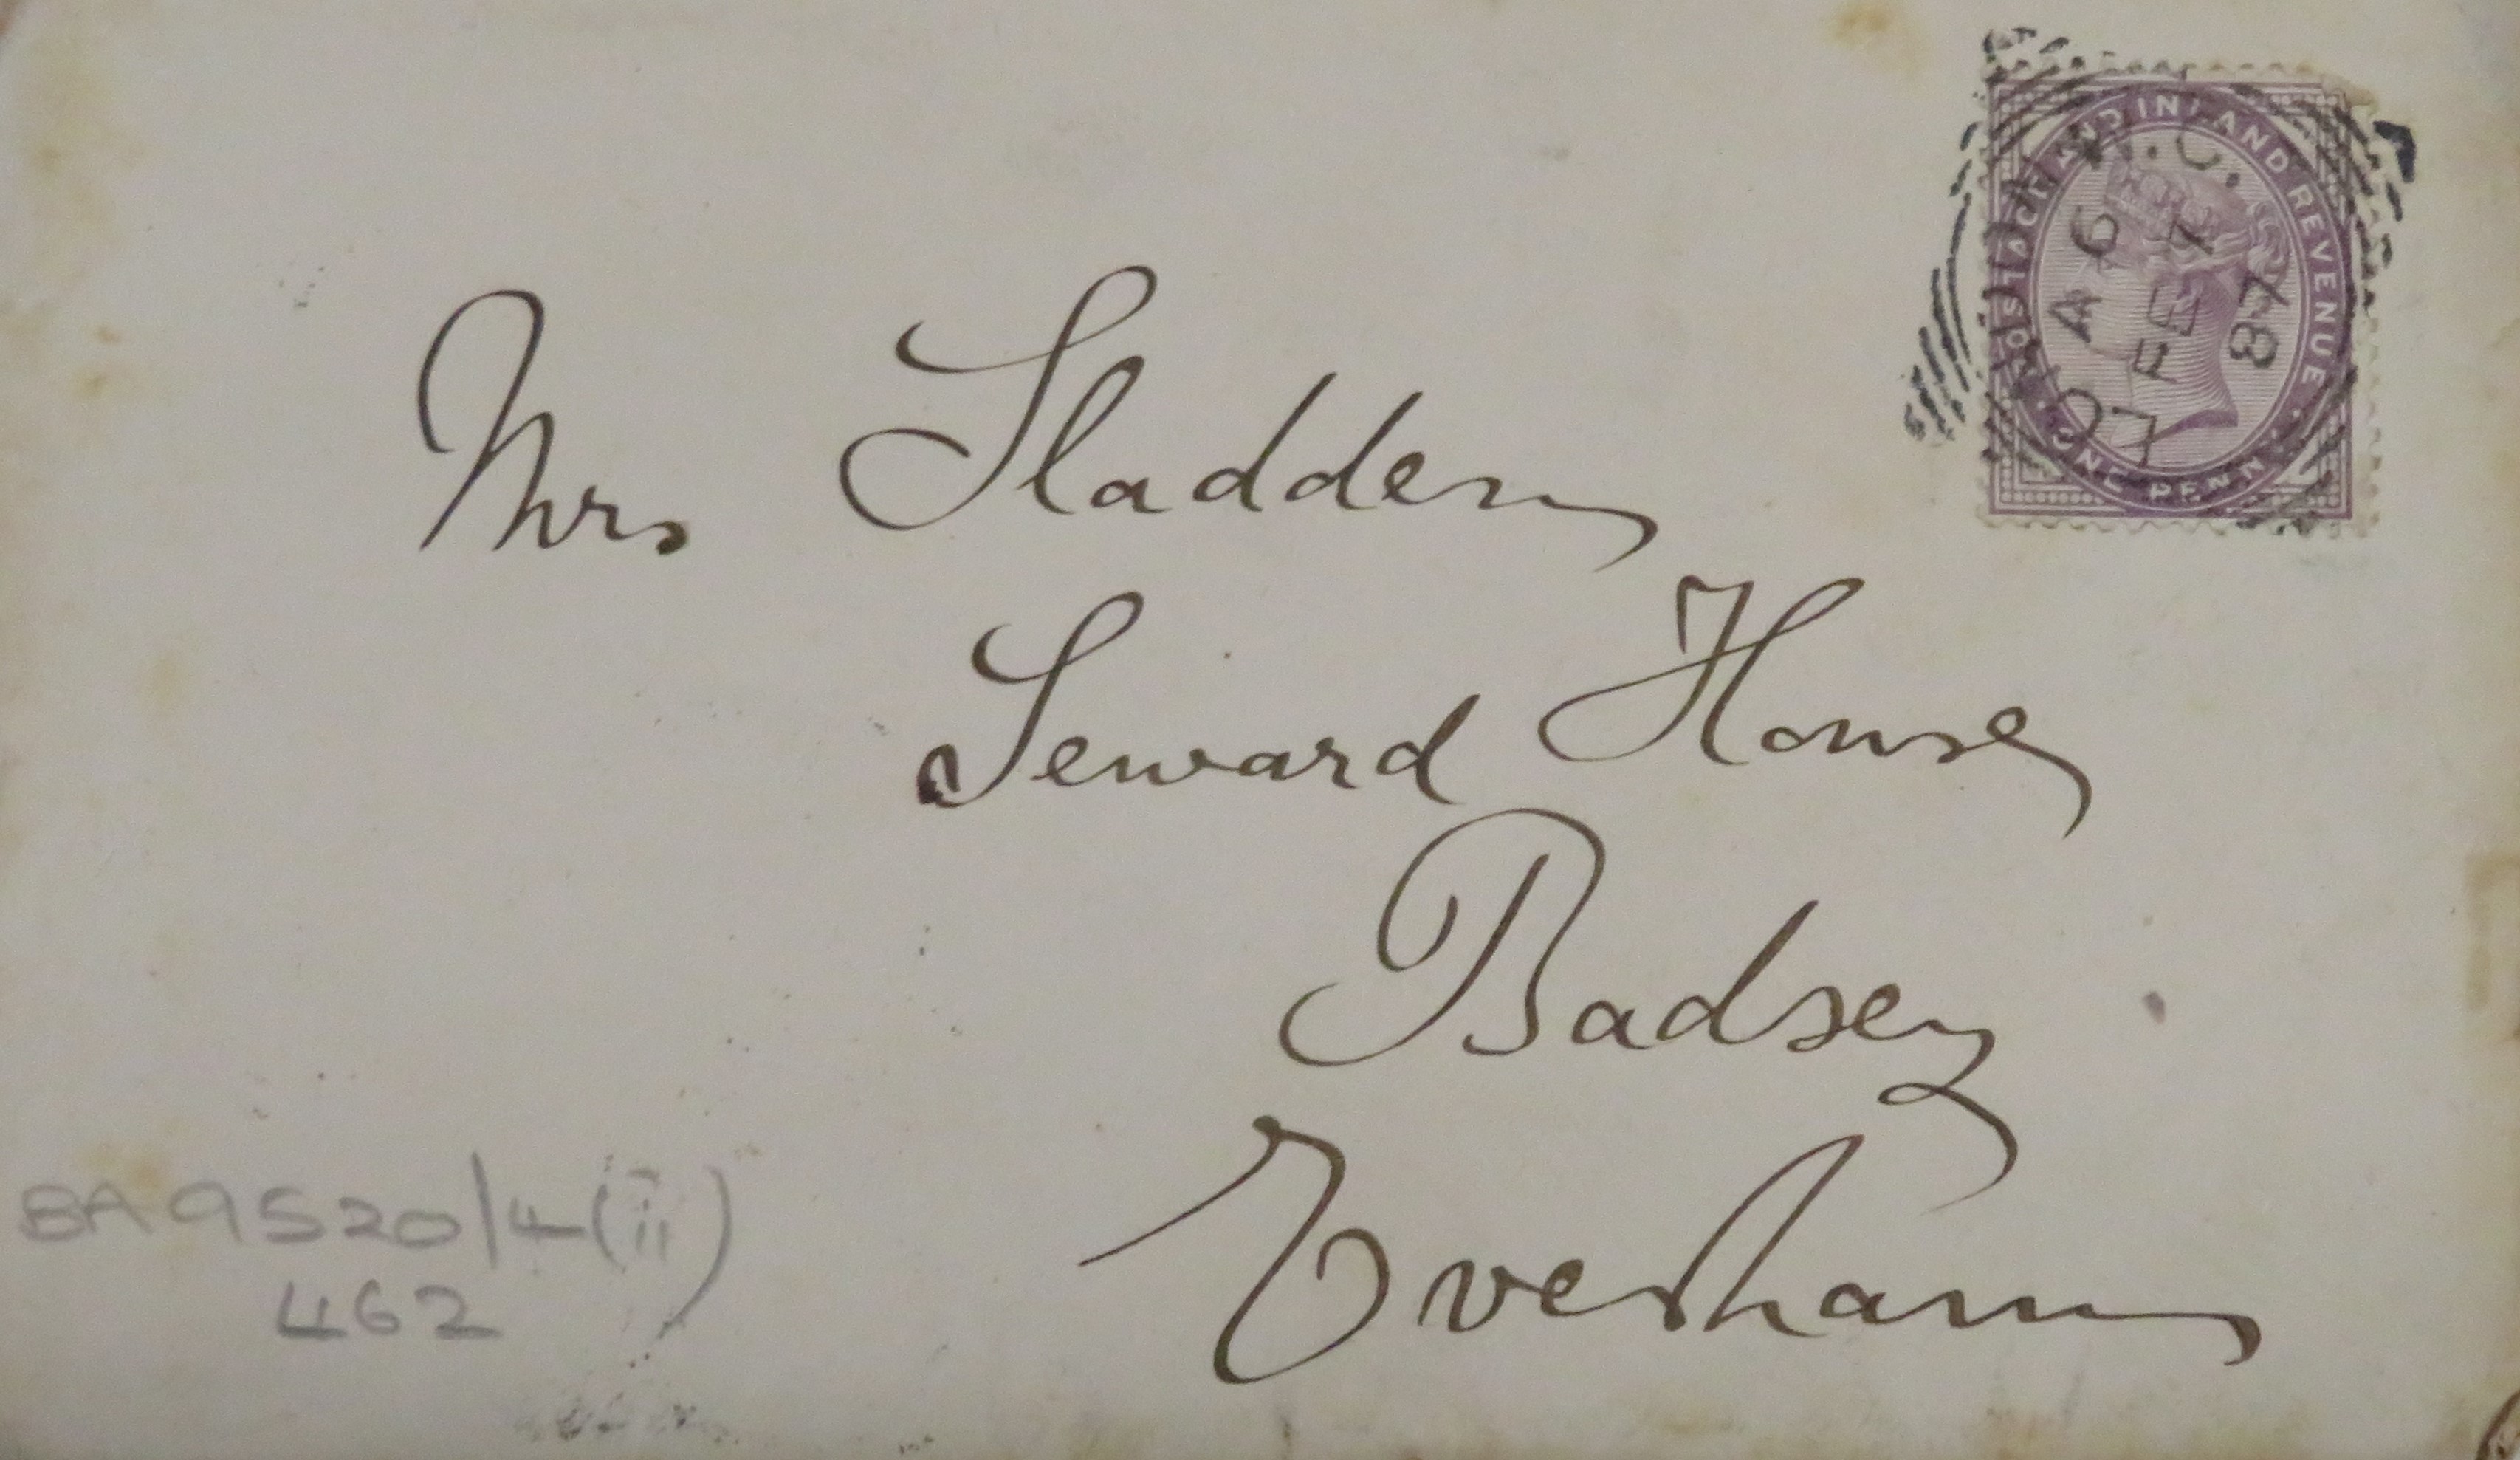 POSTAGE AND INLAND REVENUE
ONE PENNY
LONDON W.C.
A6
FE 7
87
Mrs Sladden
Seward House
Badsey
Evesham
BA 9520/4(ii)
462